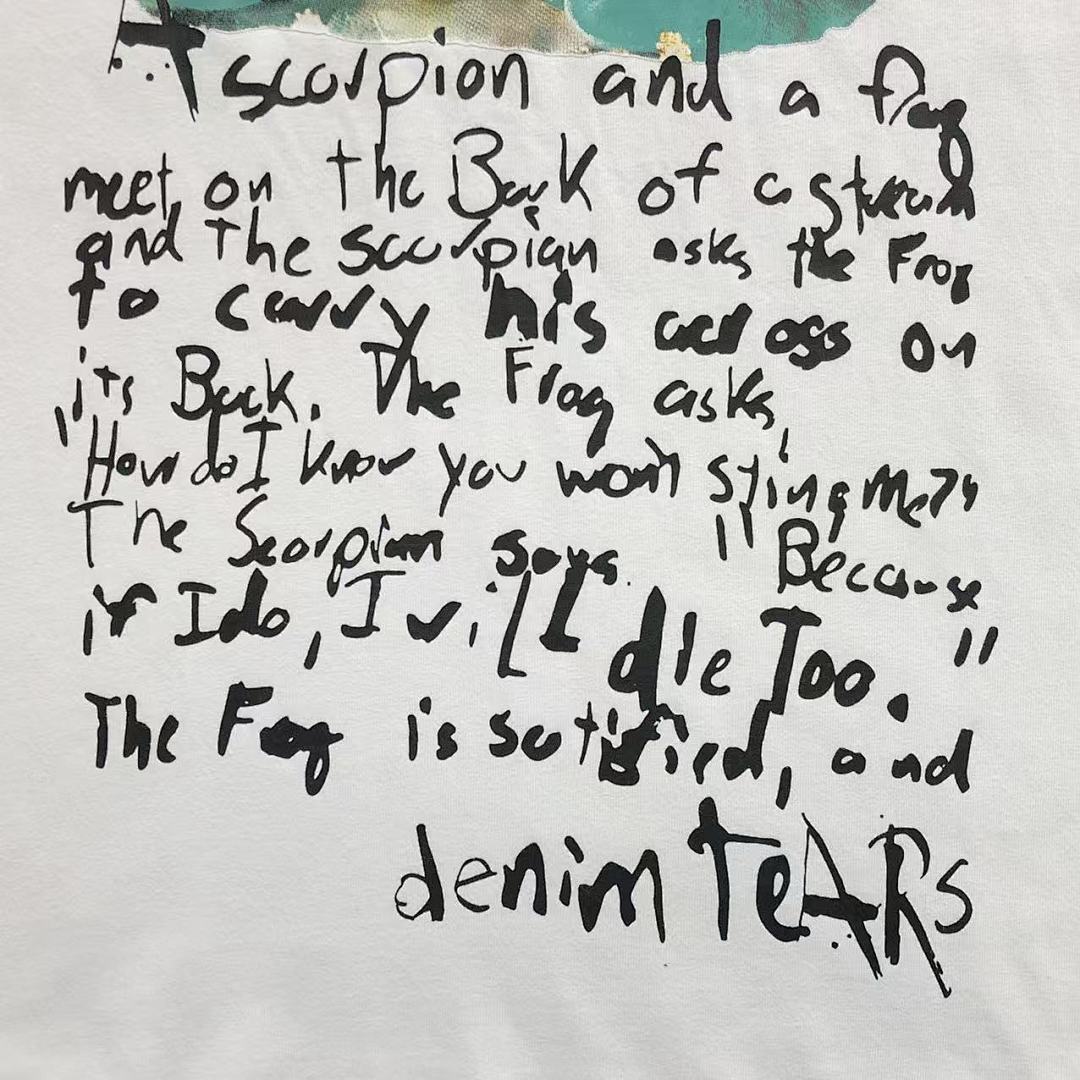 A scorpion and a frog
meet, on the Bank of a stream
and the scorpion asks the Frog
to carry his across on
its Back. The Frog asks,
"How do I know you won't sting me?"
The Scorpion says. "Because
if I do, I will die Too."
The Frog is satisfied, and
denim TeARs